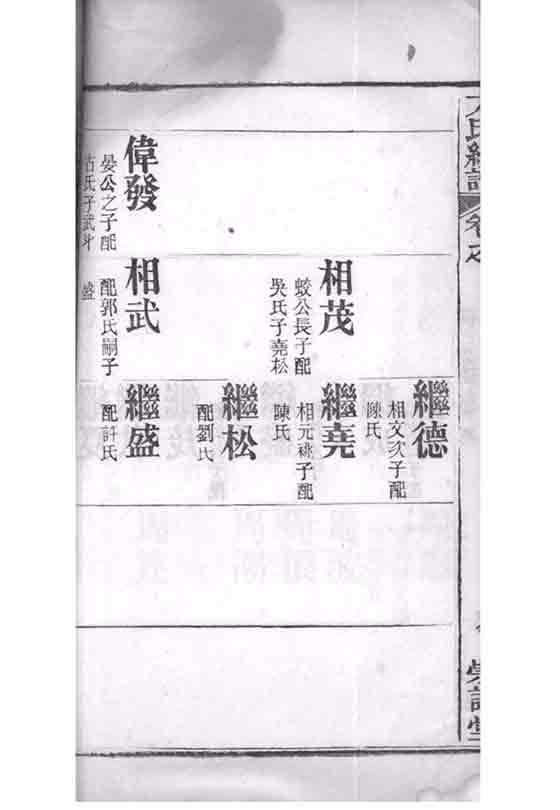 氏
卷之
繼德
相文次子配
陳氏
相茂
蛟公長子配
吳氏子堯松
繼堯
相元祧子配
陳氏
繼松
配劉氏
偉發
晏公之子配
古氏子武斗
相武
配郭氏嗣子
盛
繼盛
配許氏